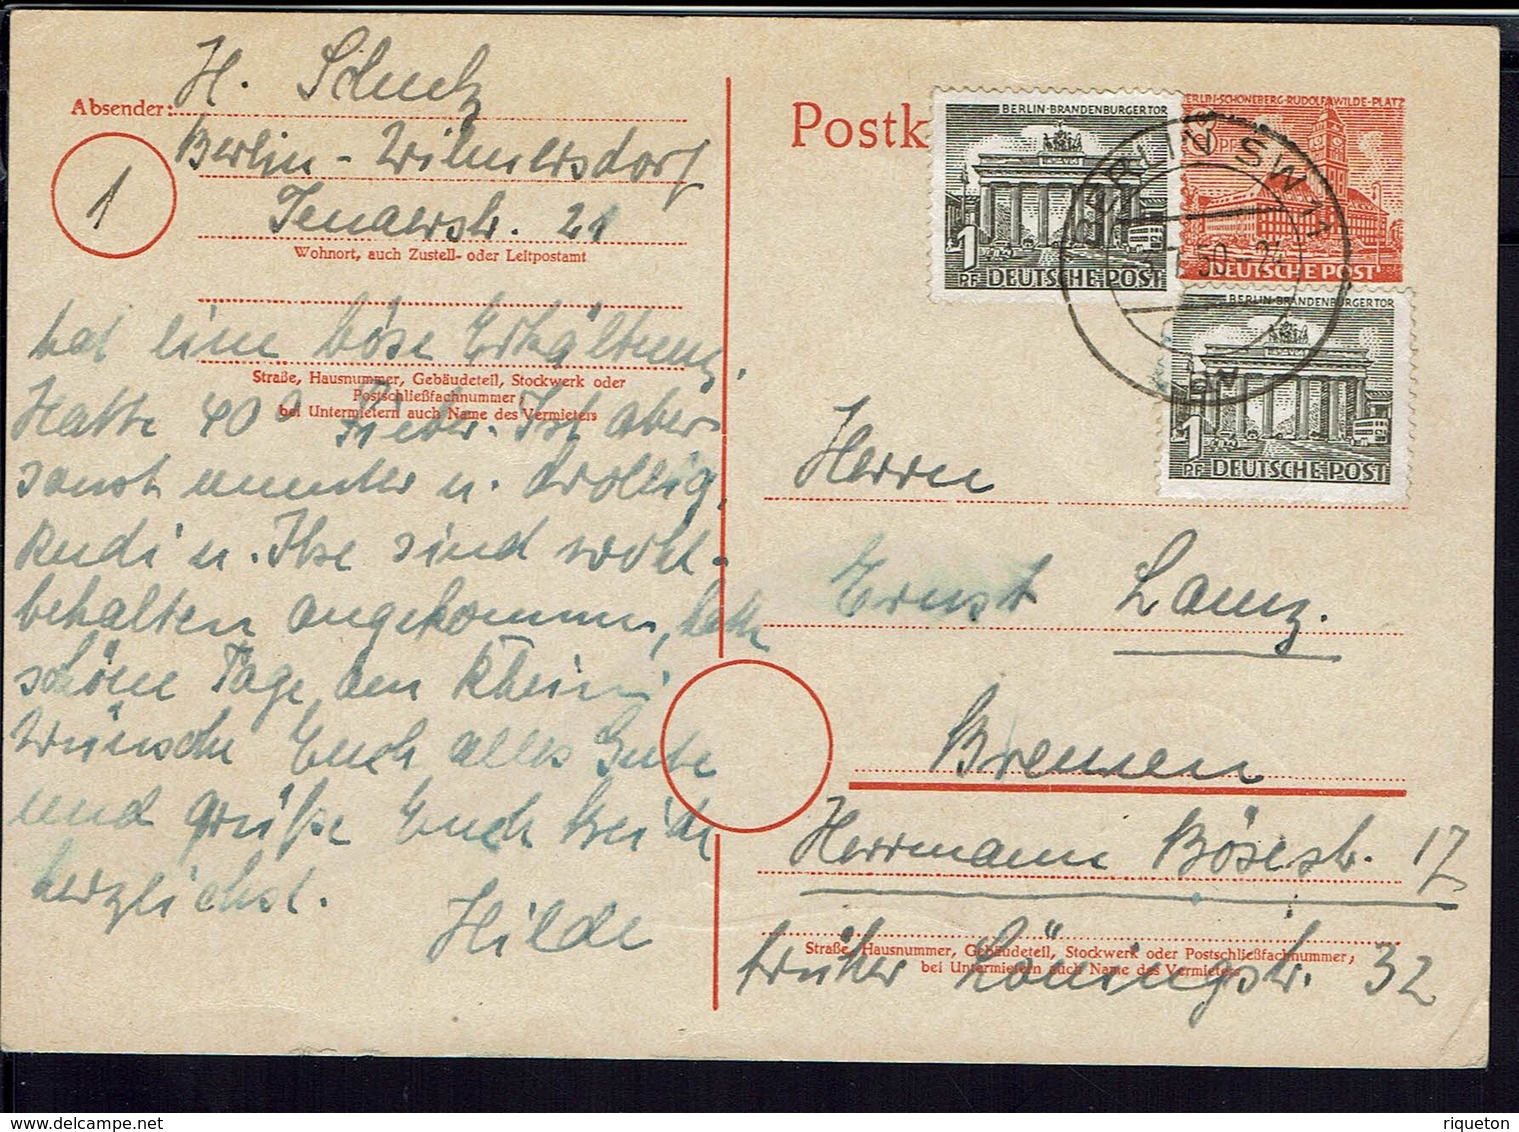 Absender:
H. Schulz
Berlin - Wilmersdorf
Jenaerstr. 21
1
Wohnort, auch Zustell- oder Leitpostamt
Straße, Hausnummer, Gebäudeteil, Stockwerk oder
Postschließfachnummer;
bei Untermietern auch Name des Vermieters
hat eine böse Erkältung.
Hatte 40° Fieber. Ist aber
sonst munter u. drollig.
Rudi u. Ilse sind wohl-
behalten angekommen, hatten
schöne Tage am Rhein.
Wünsche Euch alles Gute
und grüße Euch beide
herzlichst.
Hilde
Postk
BERLIN-BRANDENBURGER TOR
1 PF DEUTSCHE POST
BERLIN-SCHÖNEBERG-RUDOLF-WILDE-PLATZ
PF
DEUTSCHE POST
BERLIN SW 11
50-24
BERLIN-BRANDENBURGER TOR
1 PF DEUTSCHE POST
Herrn
Ernst
Bremen
Herrmann Bösestr. 17
früher Löningstr. 32
Straße, Hausnummer, Gebäudeteil, Stockwerk oder Postschließfachnummer;
bei Untermietern auch Name des Vermieters
riqueton